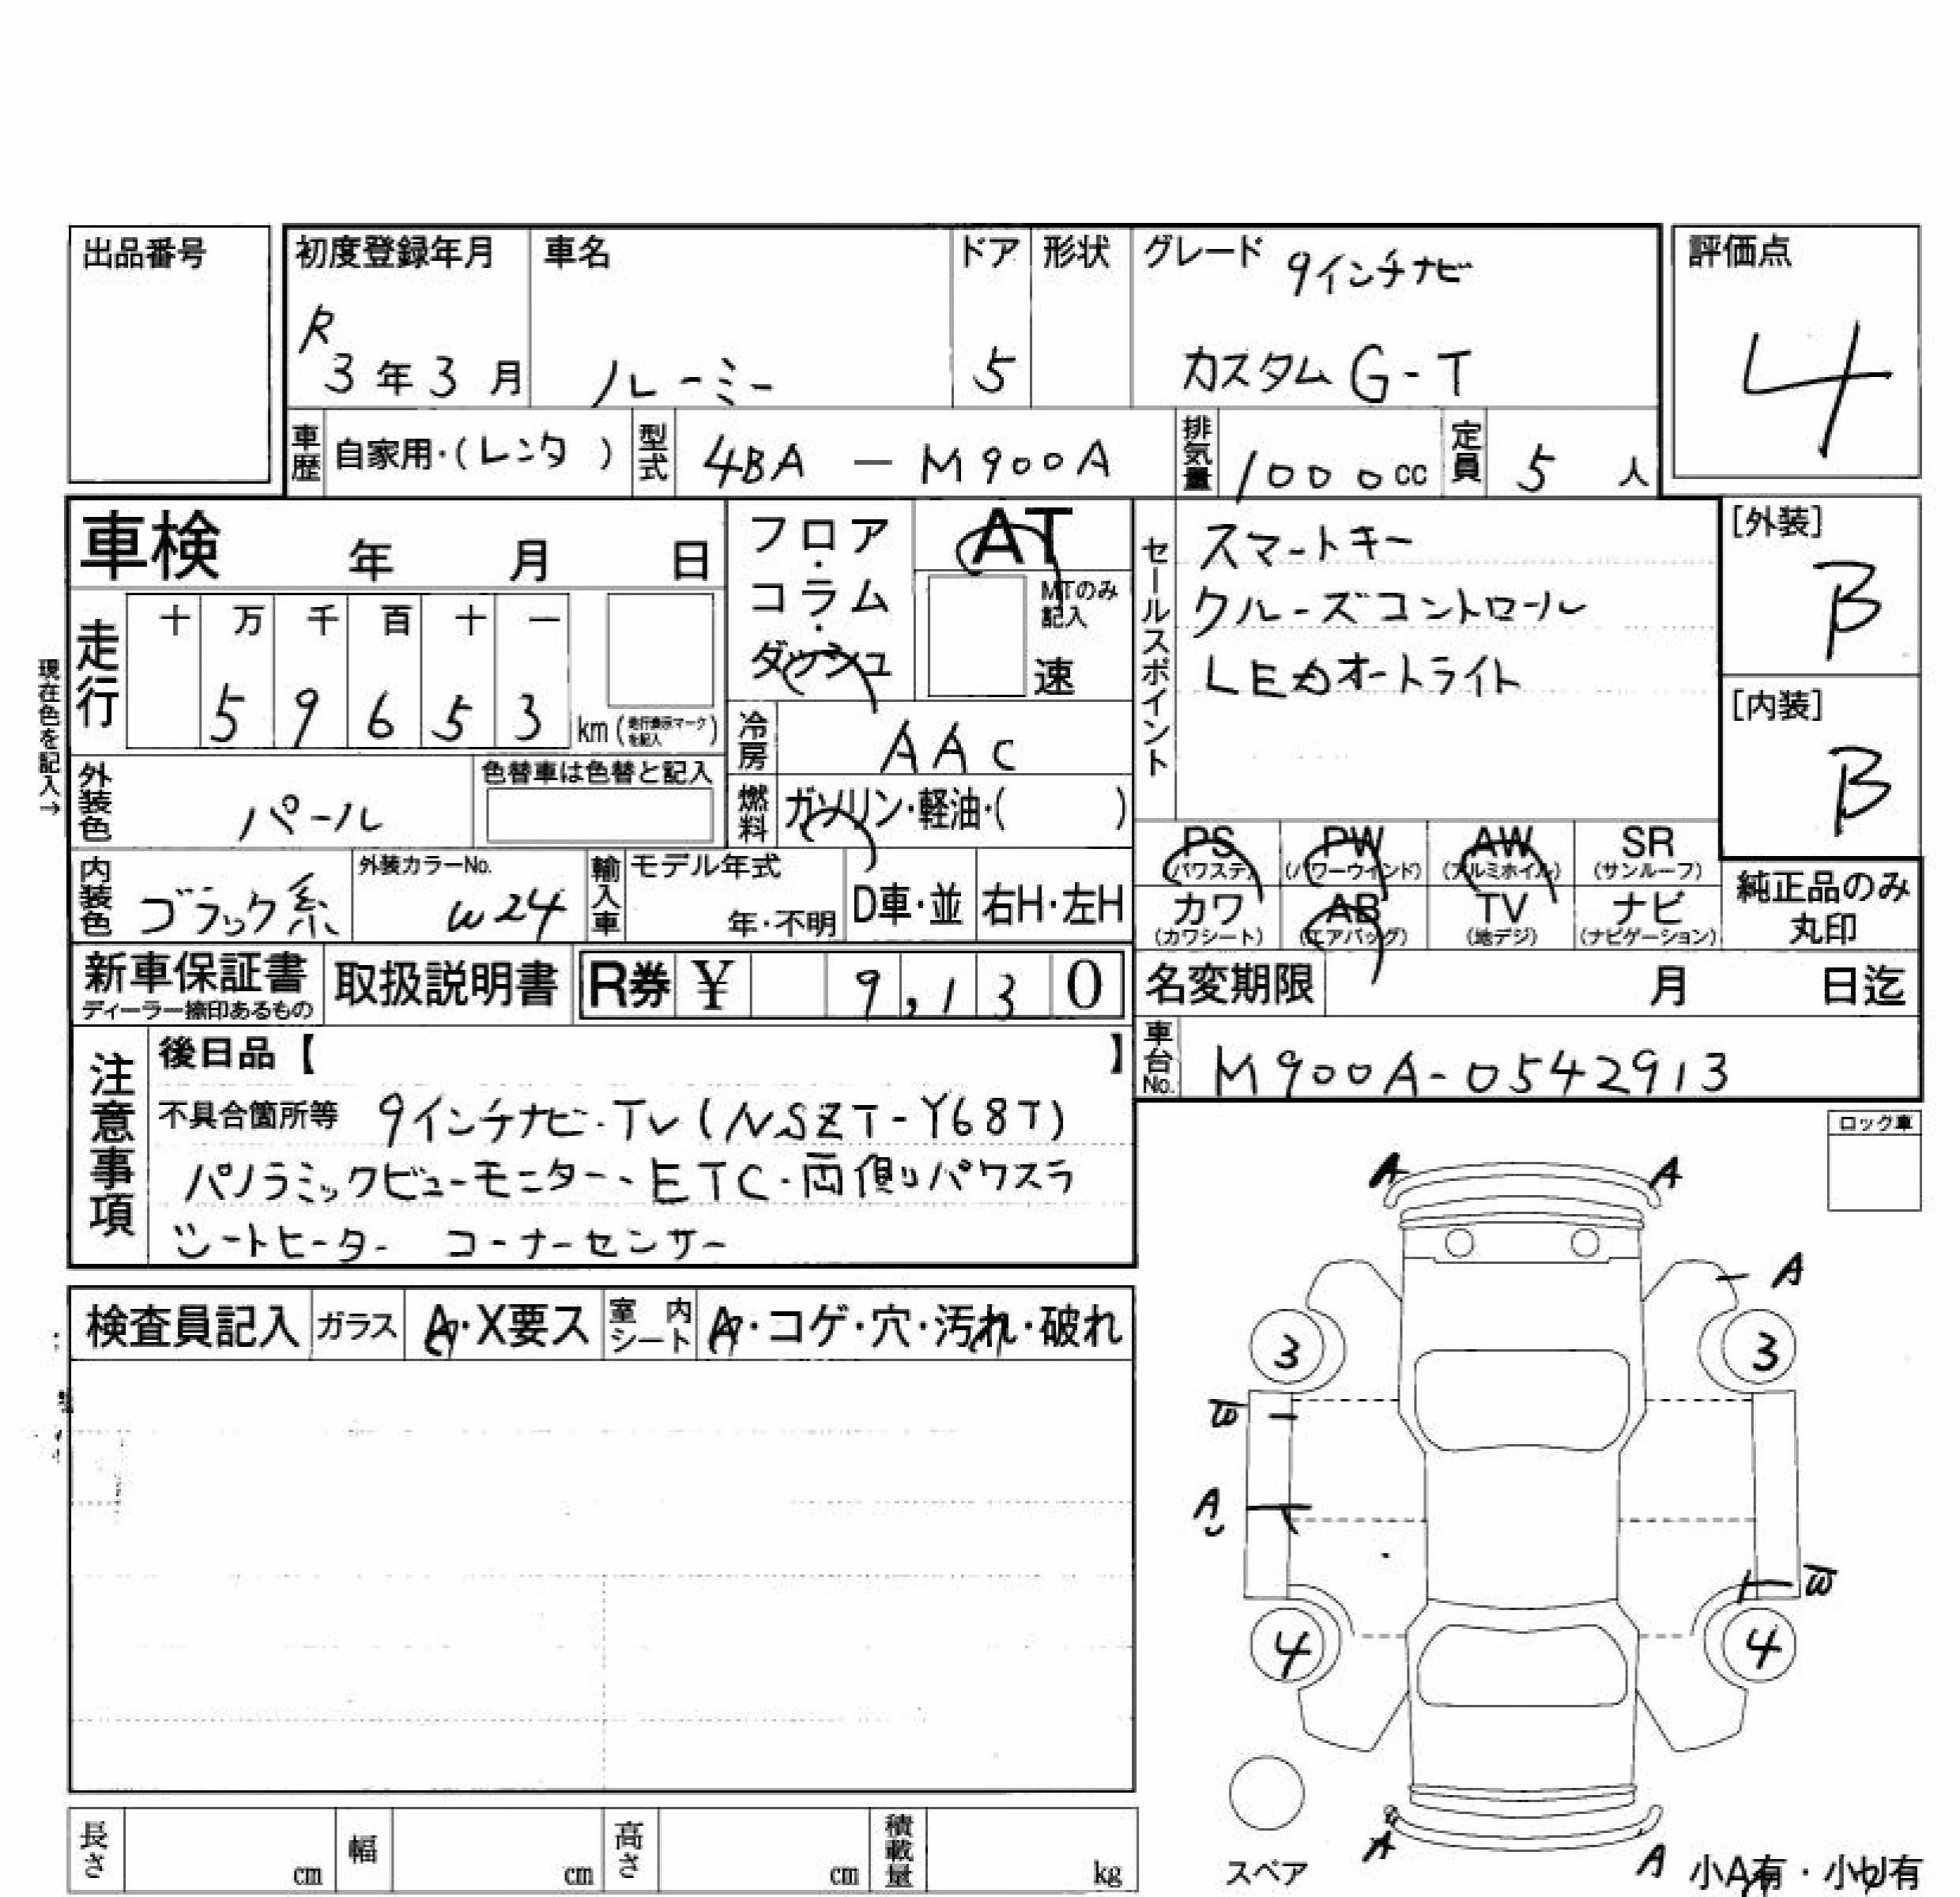 出品番号
初度登録年月
R
3年3月
車名
ルーミー
ドア
5
形状
グレード 9インチナビ
カスタム G-T
評価点
4
車歴 自家用・(レンタ )
型式 4BA - M900A
排気量 1000cc
定員 5人
車検 年 月 日
フロア・コラム・ダッシュ
AT
MTのみ記入
速
現在色を記入→
走行
十 万 千 百 十 一
5 9 6 5 3
km (走行表示マークを記入)
冷房 AAC
燃料 ガソリン・軽油・( )
外装色 パール
色替車は色替と記入
内装色 ブラック系
外装カラーNo. W24
輸入車 モデル年式
年・不明
D車・並
右H・左H
セールスポイント
スマートキー
クルーズコントロール
LEDオートライト
[外装]
B
[内装]
B
PS (パワステ)
PW (パワーウインド)
AW (アルミホイル)
SR (サンルーフ)
カワ (カワシート)
AB (エアバッグ)
TV (地デジ)
ナビ (ナビゲーション)
純正品のみ
丸印
新車保証書
ディーラー捺印あるもの
取扱説明書
R券 ¥ 9,130
名変期限 月 日迄
車台No. M900A-0542913
注意事項
後日品【 】
不具合箇所等 9インチナビ・TV(NSZT-Y68T)
パノラミックビューモニター、ETC・両側パワスラ
シートヒーター コーナーセンサー
検査員記入
ガラス A・X要ス
室内シート A・コゲ・穴・汚れ・破れ
ロック車
A A
A
3 3
W
A
W
4 4
スペア
A A
小A有・小U有
長さ cm
幅 cm
高さ cm
積載量 kg